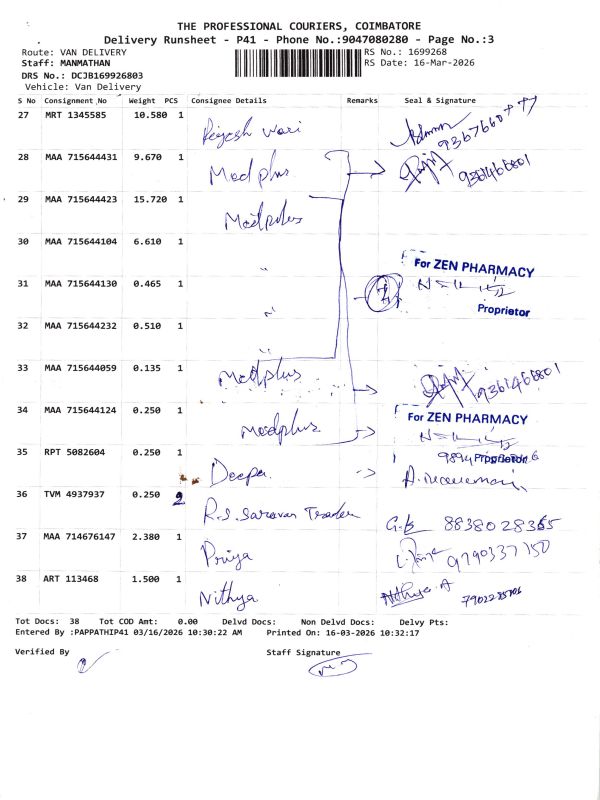 THE PROFESSIONAL COURIERS, COIMBATORE
Delivery Runsheet - P41 - Phone No.:9047080280 - Page No.:3
Route: VAN DELIVERY RS No.: 1699268
Staff: MANMATHAN RS Date: 16-Mar-2026
DRS No.: DCJB169926803
Vehicle: Van Delivery
S No Consignment No Weight PCS Consignee Details Remarks Seal & Signature
27 MRT 1345585 10.580 1
28 MAA 715644431 9.670 1 Medplus
29 MAA 715644423 15.720 1 Medplus
30 MAA 715644104 6.610 1 "
31 MAA 715644130 0.465 1 " For ZEN PHARMACY
Proprietor
32 MAA 715644232 0.510 1 "
33 MAA 715644059 0.135 1 Medplus
34 MAA 715644124 0.250 1 Medplus For ZEN PHARMACY
Proprietor
35 RPT 5082604 0.250 1 Deepa
36 TVM 4937937 0.250 2 R.S. Saravan Traders 8838028365
37 MAA 714676147 2.380 1 Priya 9790337150
38 ART 113468 1.500 1 Nithya Nithya.A
Tot Docs: 38 Tot COD Amt: 0.00 Delvd Docs: Non Delvd Docs: Delvy Pts:
Entered By :PAPPATHIP41 03/16/2026 10:30:22 AM Printed On: 16-03-2026 10:32:17
Verified By Staff Signature